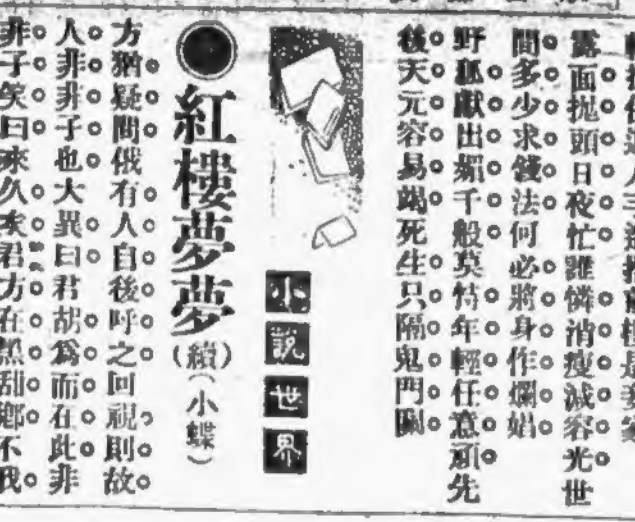 露面拋頭日夜忙誰憐消瘦減容光世
間多少求錢法何必將身作爛娼
野狐獻出媚千般莫恃年輕任意頑先
後天元容易竭死生只隔鬼門關
小說世界
紅樓夢夢(續)(小蝶)
方猶疑間俄有人自後呼之回視則故
人非非子也大異曰君胡爲而在此非
非子笑曰來久矣君方在黑甜鄉不我